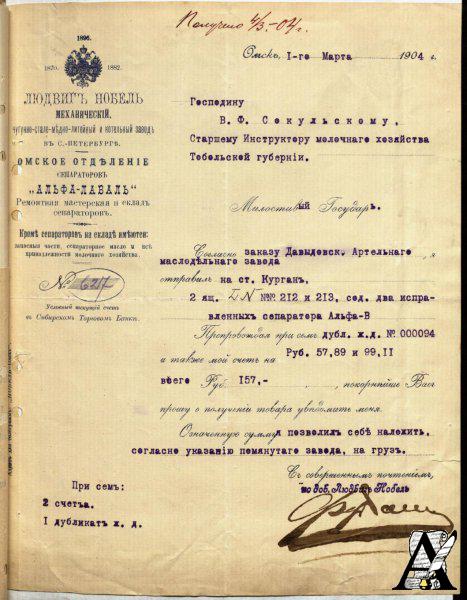 Получено 4/3 - 04 г.
Омскъ, 1-го Марта 1904 г.
1896.
1870. 1882.
ЛЮДВИГЪ НОБЕЛЬ
МЕХАНИЧЕСКІЙ,
чугунно-стале-мѣдно-литейный и котельный заводъ
ВЪ С.-ПЕТЕРБУРГѢ.
ОМСКОЕ ОТДѢЛЕНІЕ
СЕПАРАТОРОВЪ
„АЛЬФА-ЛАВАЛЬ"
Ремонтная мастерская и складъ
сепараторовъ.
Кромѣ сепараторовъ на складѣ имѣются:
запасныя части, сепараторное масло и всѣ
принадлежности молочнаго хозяйства.
№ 627
Условный текущій счетъ
въ Сибирскомъ Торговомъ Банкѣ.
Господину
В.Ф. Сокульскому.
Старшему Инструктору молочнаго хозяйства
Тобольской губерніи.
Милостивый Государь.
Согласно заказу Давыдовск. Артельнаго я
маслодѣльнаго завода
отправилъ на ст. Курганъ.
2 ящ. LN №№ 212 и 213, сод. два испра-
вленныхъ сепаратора Альфа-В
Препровождая при семъ дубл. ж.д. № 000094
а также мой счетъ на Руб. 57,89 и 99,11
всего Руб 157,- , покорнѣйше Васъ
прошу о полученіи товара увѣдомить меня.
Означенную сумму я позволилъ себѣ наложить,
согласно указанію помянутаго завода, на грузъ.
Съ совершеннымъ почтеніемъ,
по дов. Людвигъ Нобель
При семъ:
2 счета.
1 дубликатъ ж. д.
А